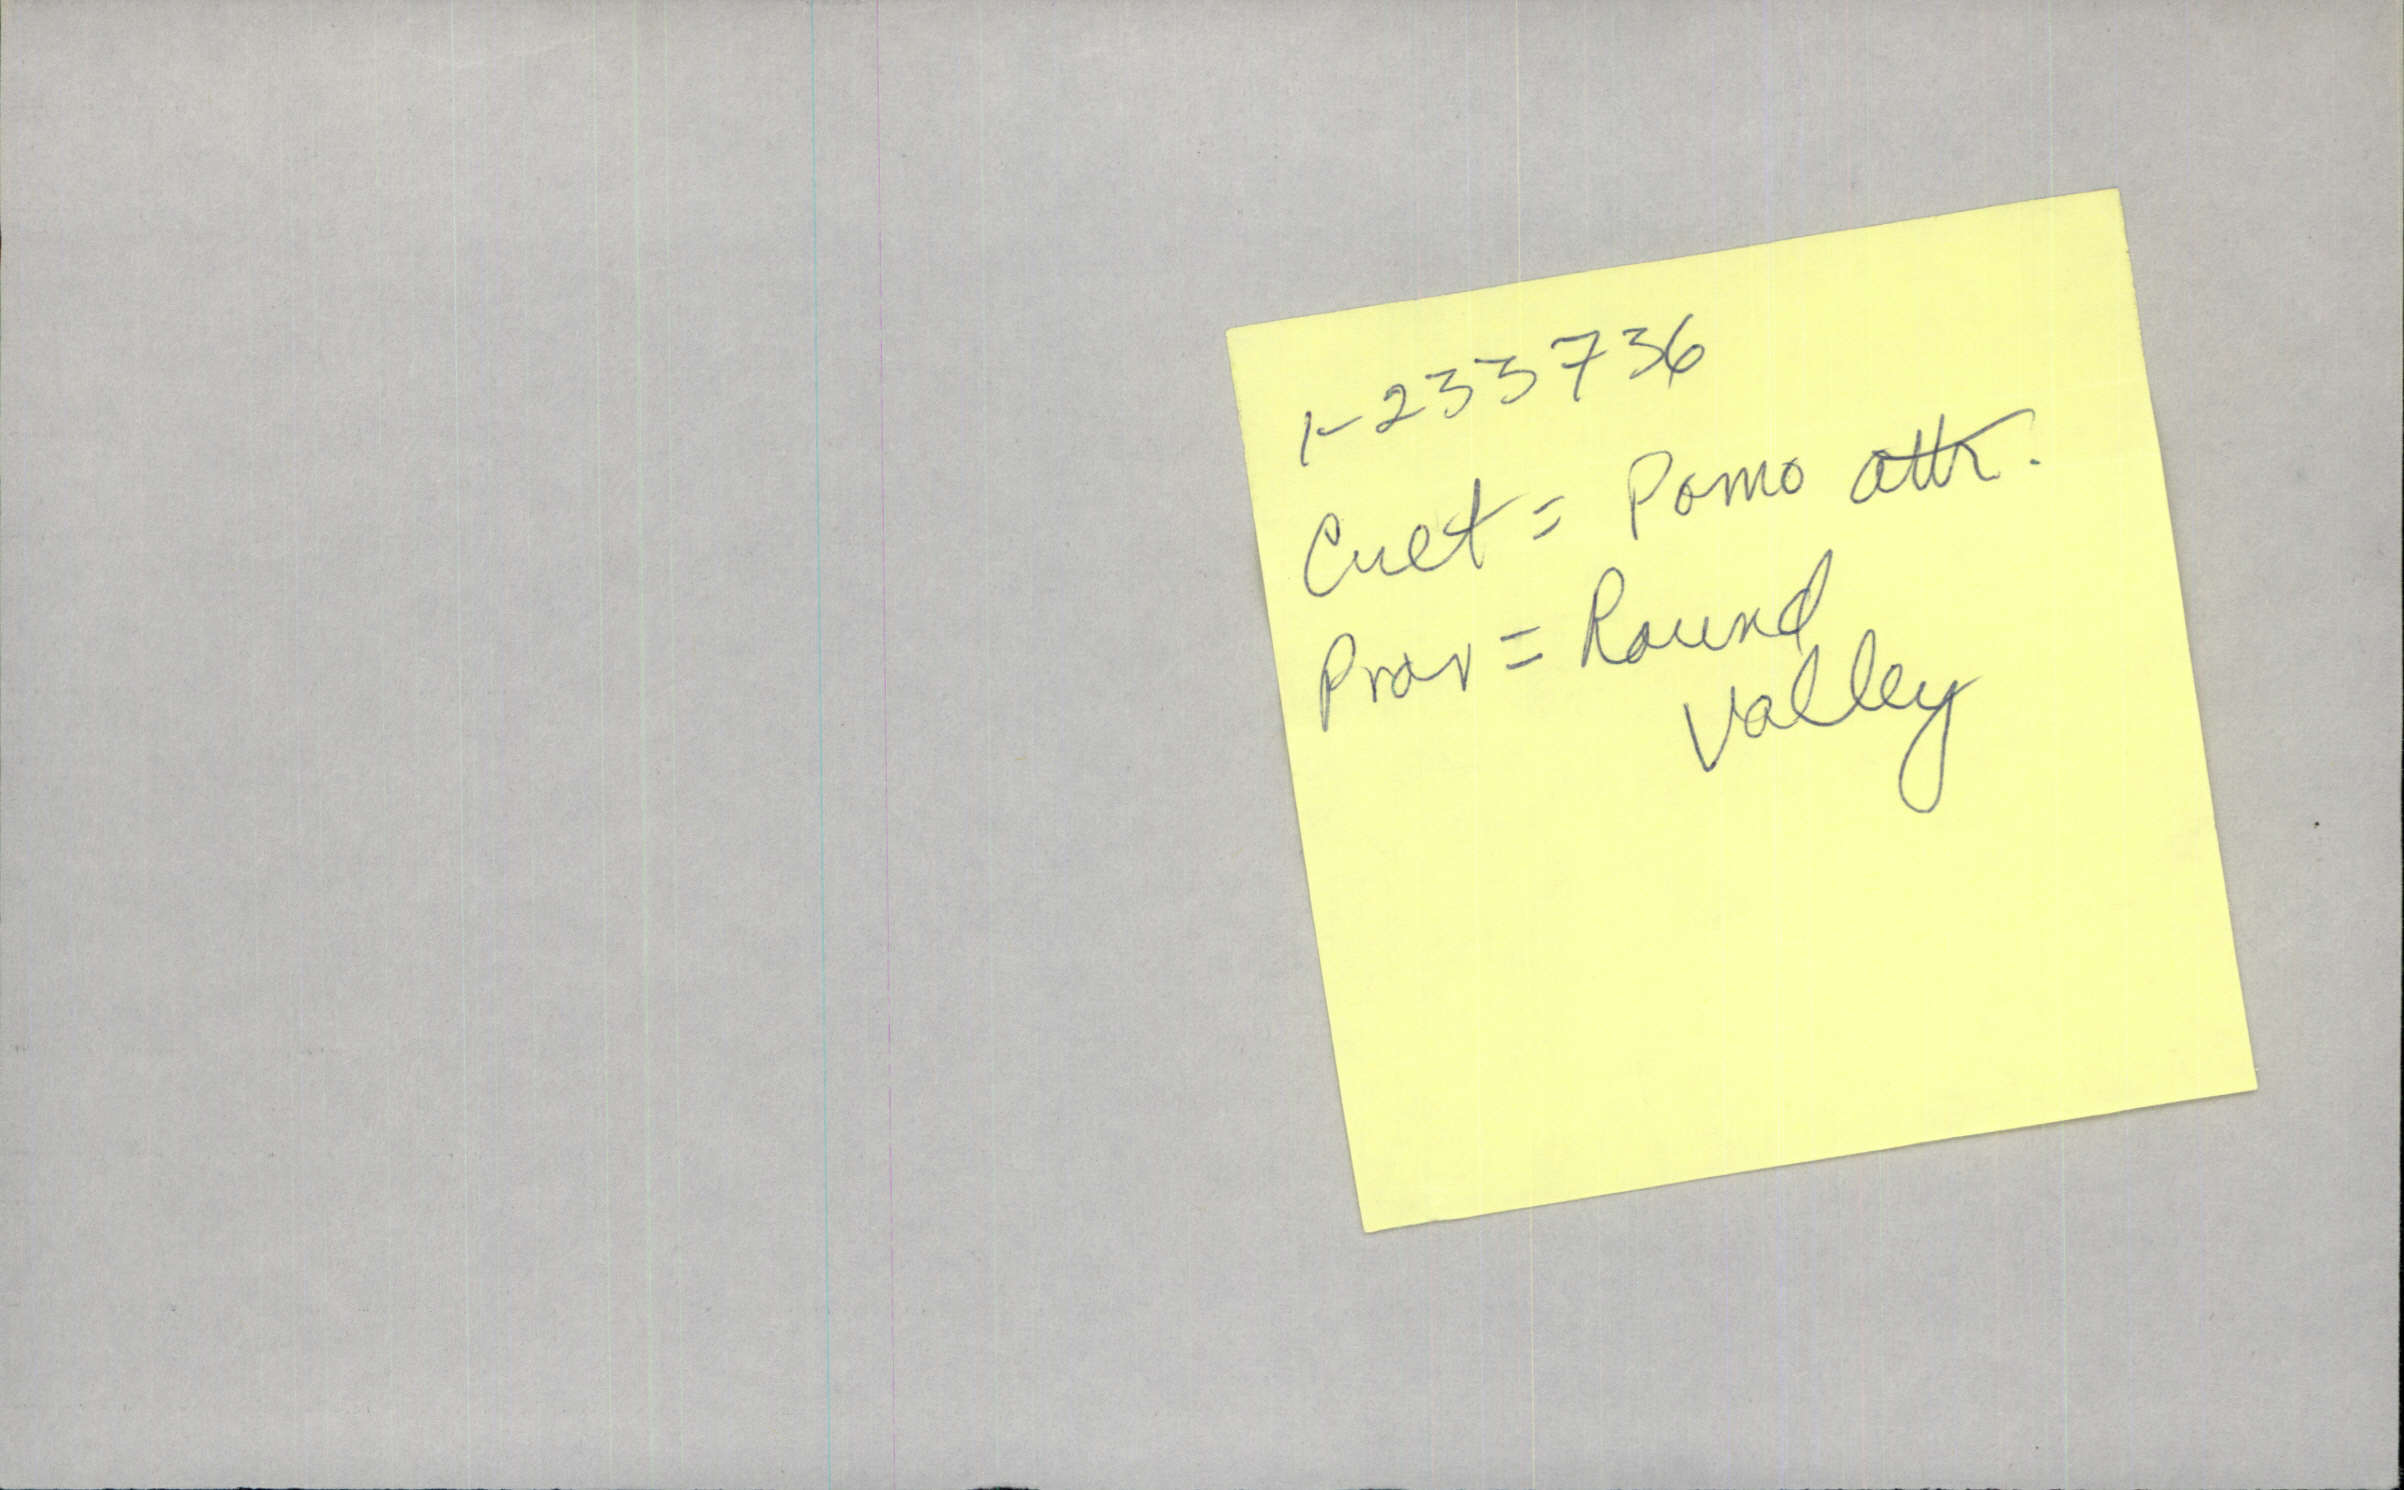 1-233736
Cult = Pomo attr.
Prov = Round
Valley